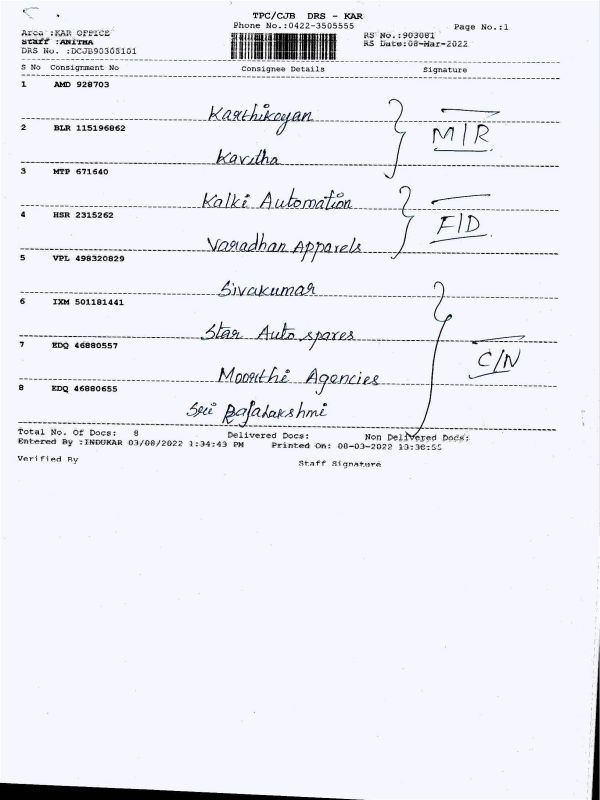 TPC/CJB DRS - KAR
Phone No.:0422-3505555
Page No.:1
Area :KAR OFFICE
RS No.:903081
Staff :ANITHA
RS Date:08-Mar-2022
DRS No. :DCJB90305101
S No Consignment No Consignee Details Signature
1 AMD 928703
Karthikeyan
M/R
2 BLR 115196862
Kavitha
3 MTP 671640
Kalki Automation
F/D
4 HSR 2315262
Varadhan Apparels
5 VPL 498320829
Sivakumar
6 IXM 501181441
Star Auto spares
7 EDQ 46880557
C/N
Moorthi Agencies
8 EDQ 46880655
Sri Rajalakshmi
Total No. Of Docs: 8 Delivered Docs: Non Delivered Docs:
Entered By :INDUKAR 03/08/2022 1:34:43 PM Printed On: 08-03-2022 13:36:55
Verified By
Staff Signature